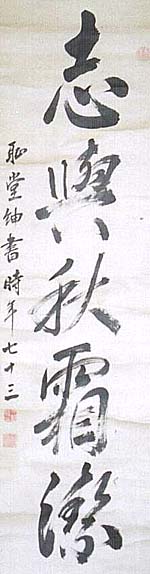 志與秋霜潔
耻堂紳書時年七十三